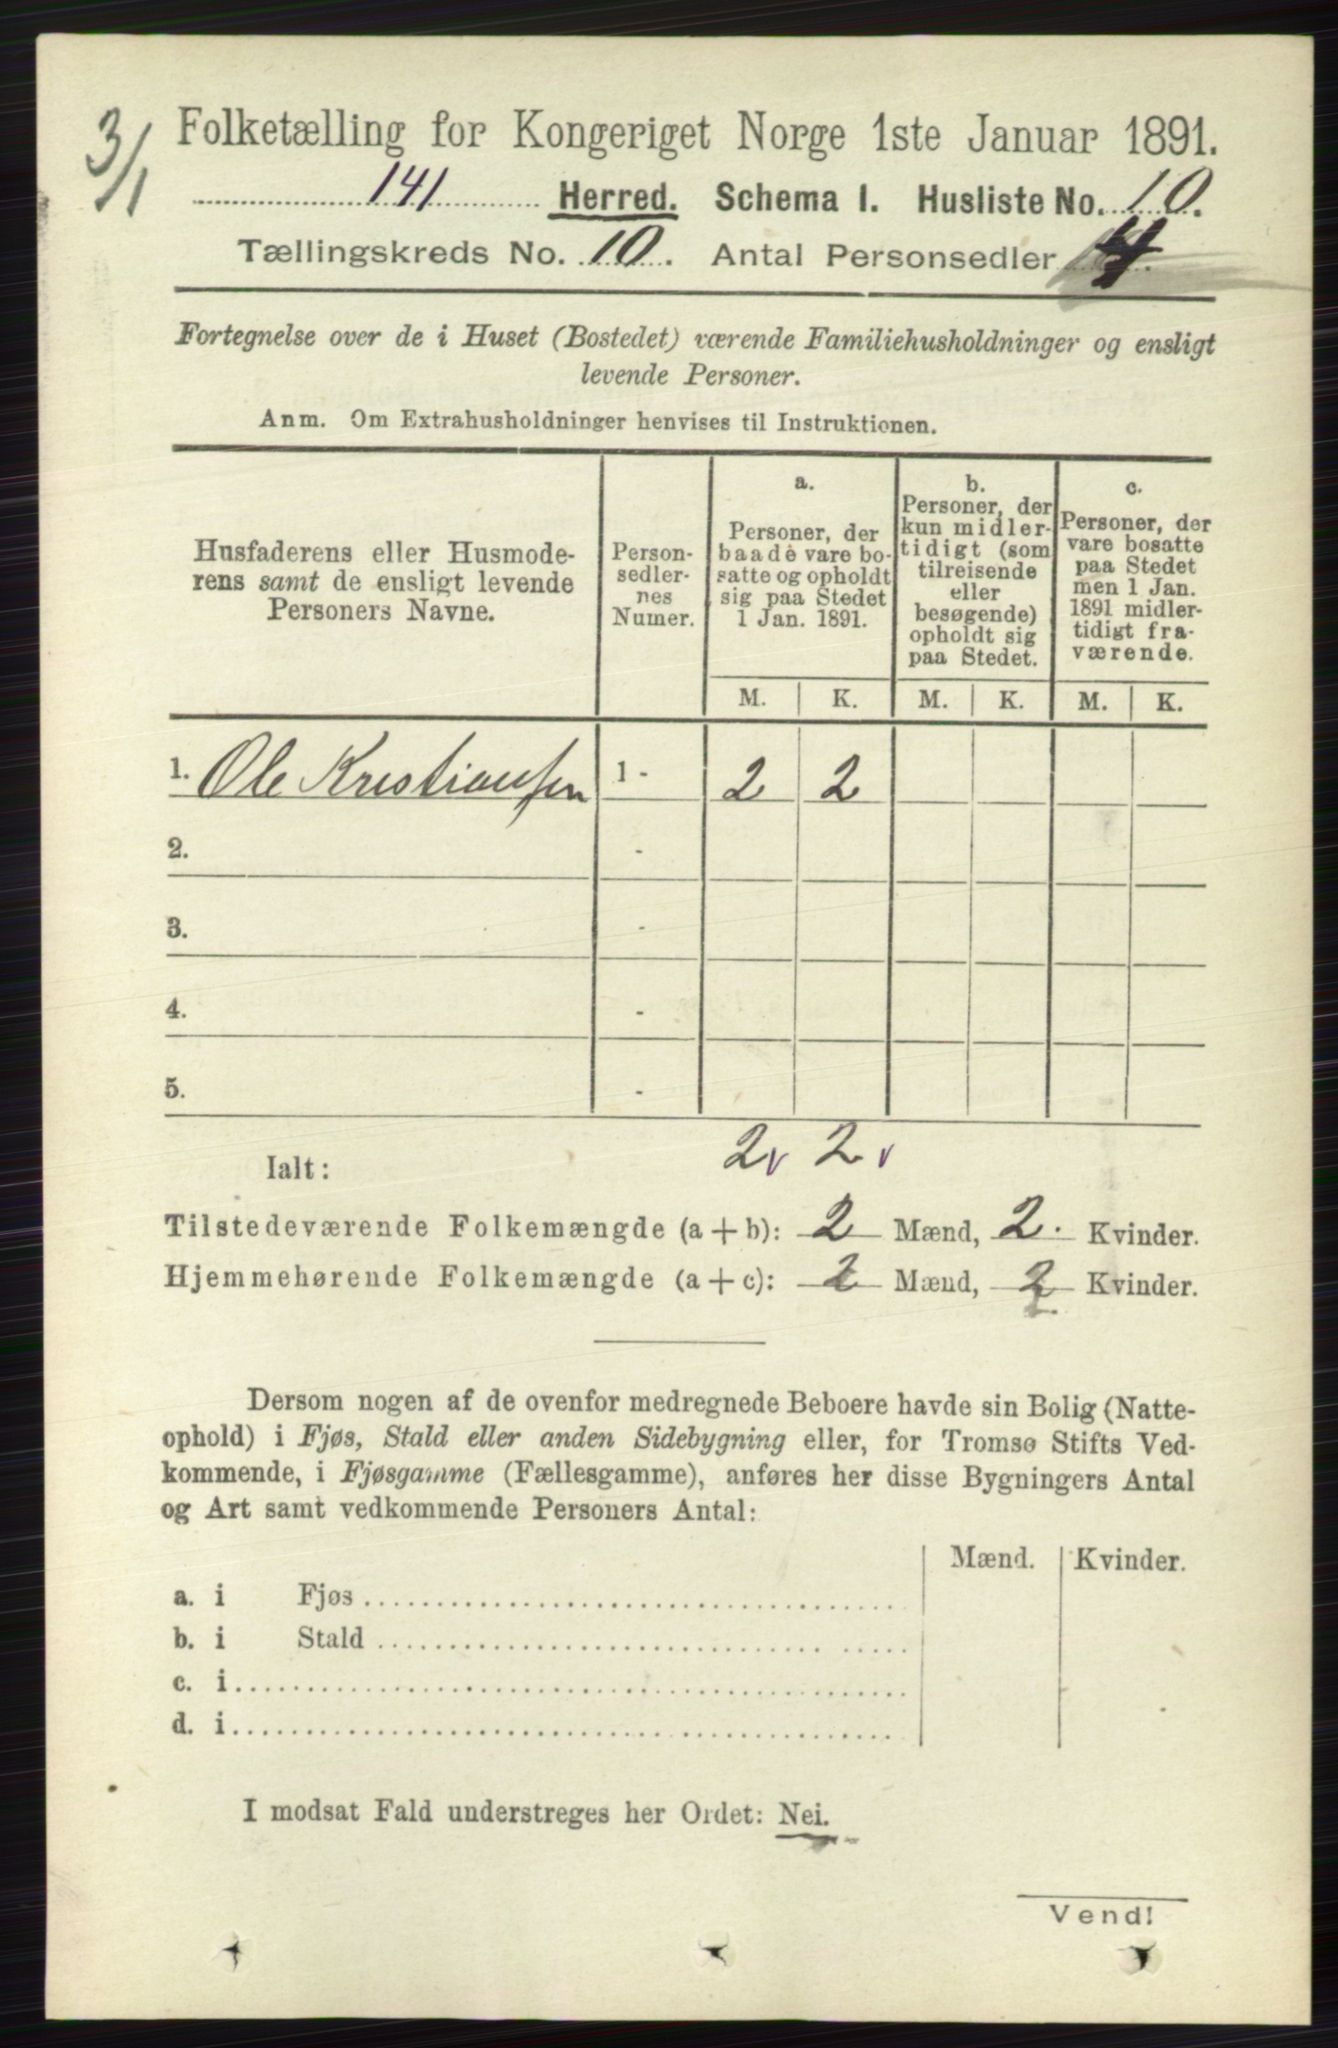 3/1
Folketælling for Kongeriget Norge 1ste Januar 1891.
141 Herred. Schema I. Husliste No. 10.
Tællingskreds No. 10. Antal Personsedler 4.
Fortegnelse over de i Huset (Bostedet) værende Familiehusholdninger og ensligt
levende Personer.
Anm. Om Extrahusholdninger henvises til Instruktionen.
Husfaderens eller Husmode-
rens samt de ensligt levende
Personers Navne.
Person-
sedler-
nes
Numer.
a.
Personer, der
baade vare bo-
satte og opholdt
sig paa Stedet
1 Jan. 1891.
b.
Personer, der
kun midler-
tidigt (som
tilreisende
eller
besøgende)
opholdt sig
paa Stedet.
c.
Personer, der
vare bosatte
paa Stedet
men 1 Jan.
1891 midler-
tidigt fra-
værende.
M. K. M. K. M. K.
1. Ole Kristiansen 1 - 2 2
2. -
3. -
4. -
5. -
Ialt: 2 2
Tilstedeværende Folkemængde (a + b): 2 Mænd, 2. Kvinder.
Hjemmehørende Folkemængde (a + c): 2 Mænd, 2 Kvinder.
Dersom nogen af de ovenfor medregnede Beboere havde sin Bolig (Natte-
ophold) i Fjøs, Stald eller anden Sidebygning eller, for Tromsø Stifts Ved-
kommende, i Fjøsgamme (Fællesgamme), anføres her disse Bygningers Antal
og Art samt vedkommende Personers Antal:
Mænd. Kvinder.
a. i Fjøs
b. i Stald
c. i
d. i
I modsat Fald understreges her Ordet: Nei.
Vend!